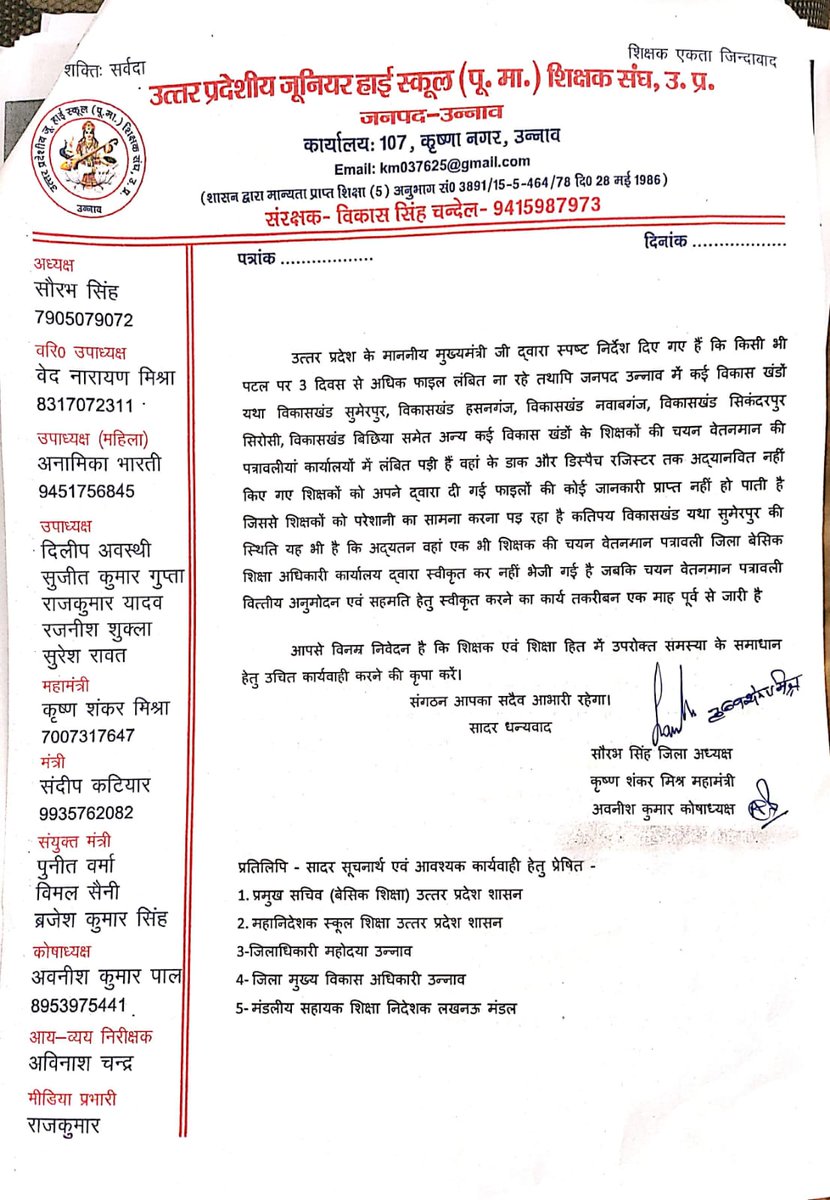 शक्तिः सर्वदा
शिक्षक एकता जिन्दाबाद
उत्तर प्रदेशीय जूनियर हाई स्कूल (पू. मा.) शिक्षक संघ, उ. प्र.
जनपद-उन्नाव
कार्यालय: 107, कृष्णा नगर, उन्नाव
Email: km037625@gmail.com
(शासन द्वारा मान्यता प्राप्त शिक्षा (5) अनुभाग सं0 3891/15-5-464/78 दि0 28 मई 1986)
संरक्षक- विकास सिंह चन्देल- 9415987973
उत्तर प्रदेशीय जू. हाई स्कूल (पू.मा.) शिक्षक संघ, उ. प्र.
उन्नाव
पत्रांक ..................
दिनांक ..................
अध्यक्ष
सौरभ सिंह
7905079072
वरि0 उपाध्यक्ष
वेद नारायण मिश्रा
8317072311
उपाध्यक्ष (महिला)
अनामिका भारती
9451756845
उपाध्यक्ष
दिलीप अवस्थी
सुजीत कुमार गुप्ता
राजकुमार यादव
रजनीश शुक्ला
सुरेश रावत
महामंत्री
कृष्ण शंकर मिश्रा
7007317647
मंत्री
संदीप कटियार
9935762082
संयुक्त मंत्री
पुनीत वर्मा
विमल सैनी
ब्रजेश कुमार सिंह
कोषाध्यक्ष
अवनीश कुमार पाल
8953975441
आय–व्यय निरीक्षक
अविनाश चन्द्र
मीडिया प्रभारी
राजकुमार
उत्तर प्रदेश के माननीय मुख्यमंत्री जी द्वारा स्पष्ट निर्देश दिए गए हैं कि किसी भी
पटल पर 3 दिवस से अधिक फाइल लंबित ना रहे तथापि जनपद उन्नाव में कई विकास खंडों
यथा विकासखंड सुमेरपुर, विकासखंड हसनगंज, विकासखंड नवाबगंज, विकासखंड सिकंदरपुर
सिरोसी, विकासखंड बिछिया समेत अन्य कई विकास खंडों के शिक्षकों की चयन वेतनमान की
पत्रावलीयां कार्यालयों में लंबित पड़ी हैं वहां के डाक और डिस्पैच रजिस्टर तक अद्यानवित नहीं
किए गए शिक्षकों को अपने द्वारा दी गई फाइलों की कोई जानकारी प्राप्त नहीं हो पाती है
जिससे शिक्षकों को परेशानी का सामना करना पड़ रहा है कतिपय विकासखंड यथा सुमेरपुर की
स्थिति यह भी है कि अद्यतन वहां एक भी शिक्षक की चयन वेतनमान पत्रावली जिला बेसिक
शिक्षा अधिकारी कार्यालय द्वारा स्वीकृत कर नहीं भेजी गई है जबकि चयन वेतनमान पत्रावली
वित्तीय अनुमोदन एवं सहमति हेतु स्वीकृत करने का कार्य तकरीबन एक माह पूर्व से जारी है
आपसे विनम्र निवेदन है कि शिक्षक एवं शिक्षा हित में उपरोक्त समस्या के समाधान
हेतु उचित कार्यवाही करने की कृपा करें।
संगठन आपका सदैव आभारी रहेगा।
सादर धन्यवाद
सौरभ सिंह जिला अध्यक्ष
कृष्ण शंकर मिश्र महामंत्री
अवनीश कुमार कोषाध्यक्ष
प्रतिलिपि - सादर सूचनार्थ एवं आवश्यक कार्यवाही हेतु प्रेषित -
1. प्रमुख सचिव (बेसिक शिक्षा) उत्तर प्रदेश शासन
2. महानिदेशक स्कूल शिक्षा उत्तर प्रदेश शासन
3-जिलाधिकारी महोदया उन्नाव
4- जिला मुख्य विकास अधिकारी उन्नाव
5- मंडलीय सहायक शिक्षा निदेशक लखनऊ मंडल